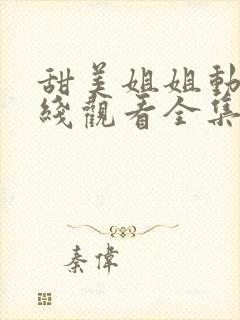 甜美姐姐動
綫觀看全集
秦偉